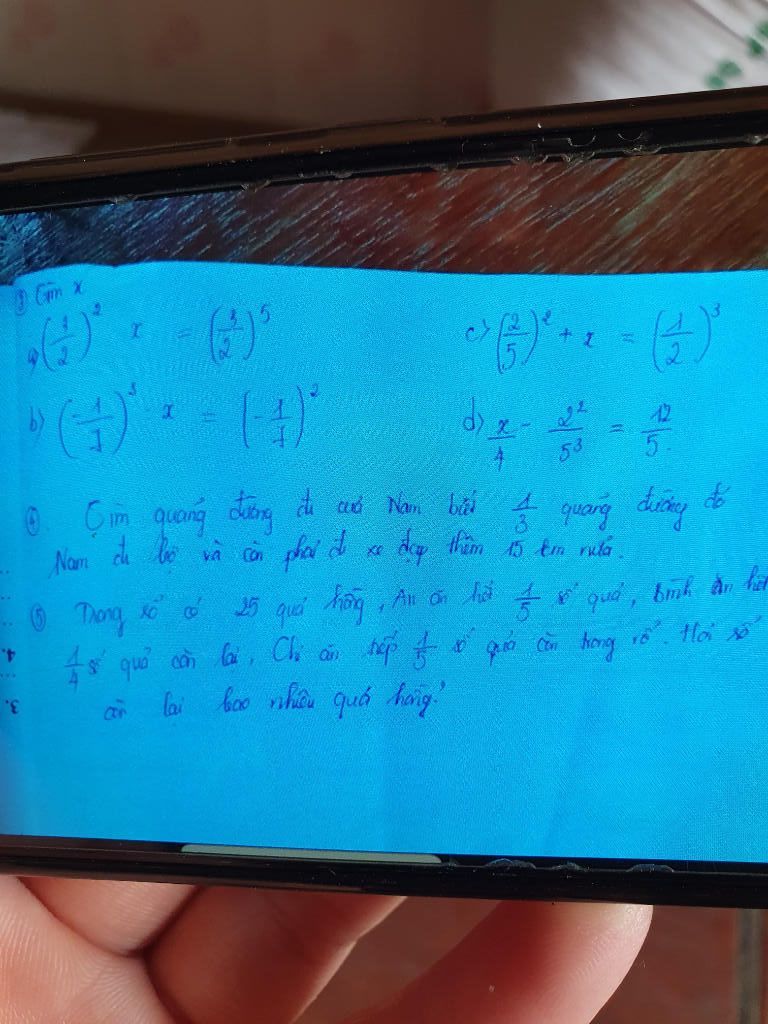 ③ Tìm x
a) (3/2)² x = (3/2)⁵
c) (2/5)² + x = (1/2)³
b) (-1/7)³ x = (-1/7)²
d) x/4 - 2²/5³ = 12/5
④. Tìm quãng đường đi của Nam biết 1/3 quãng đường đó
Nam đi bộ và còn phải đi xe đạp thêm 15 km nữa.
⑤ Trong rổ có 25 quả hồng, An ăn hết 1/5 số quả, Bình ăn hết
1/4 số quả còn lại, Chi ăn tiếp 1/5 số quả còn trong rổ. Hỏi số
còn lại bao nhiêu quả hồng?
4.
3.